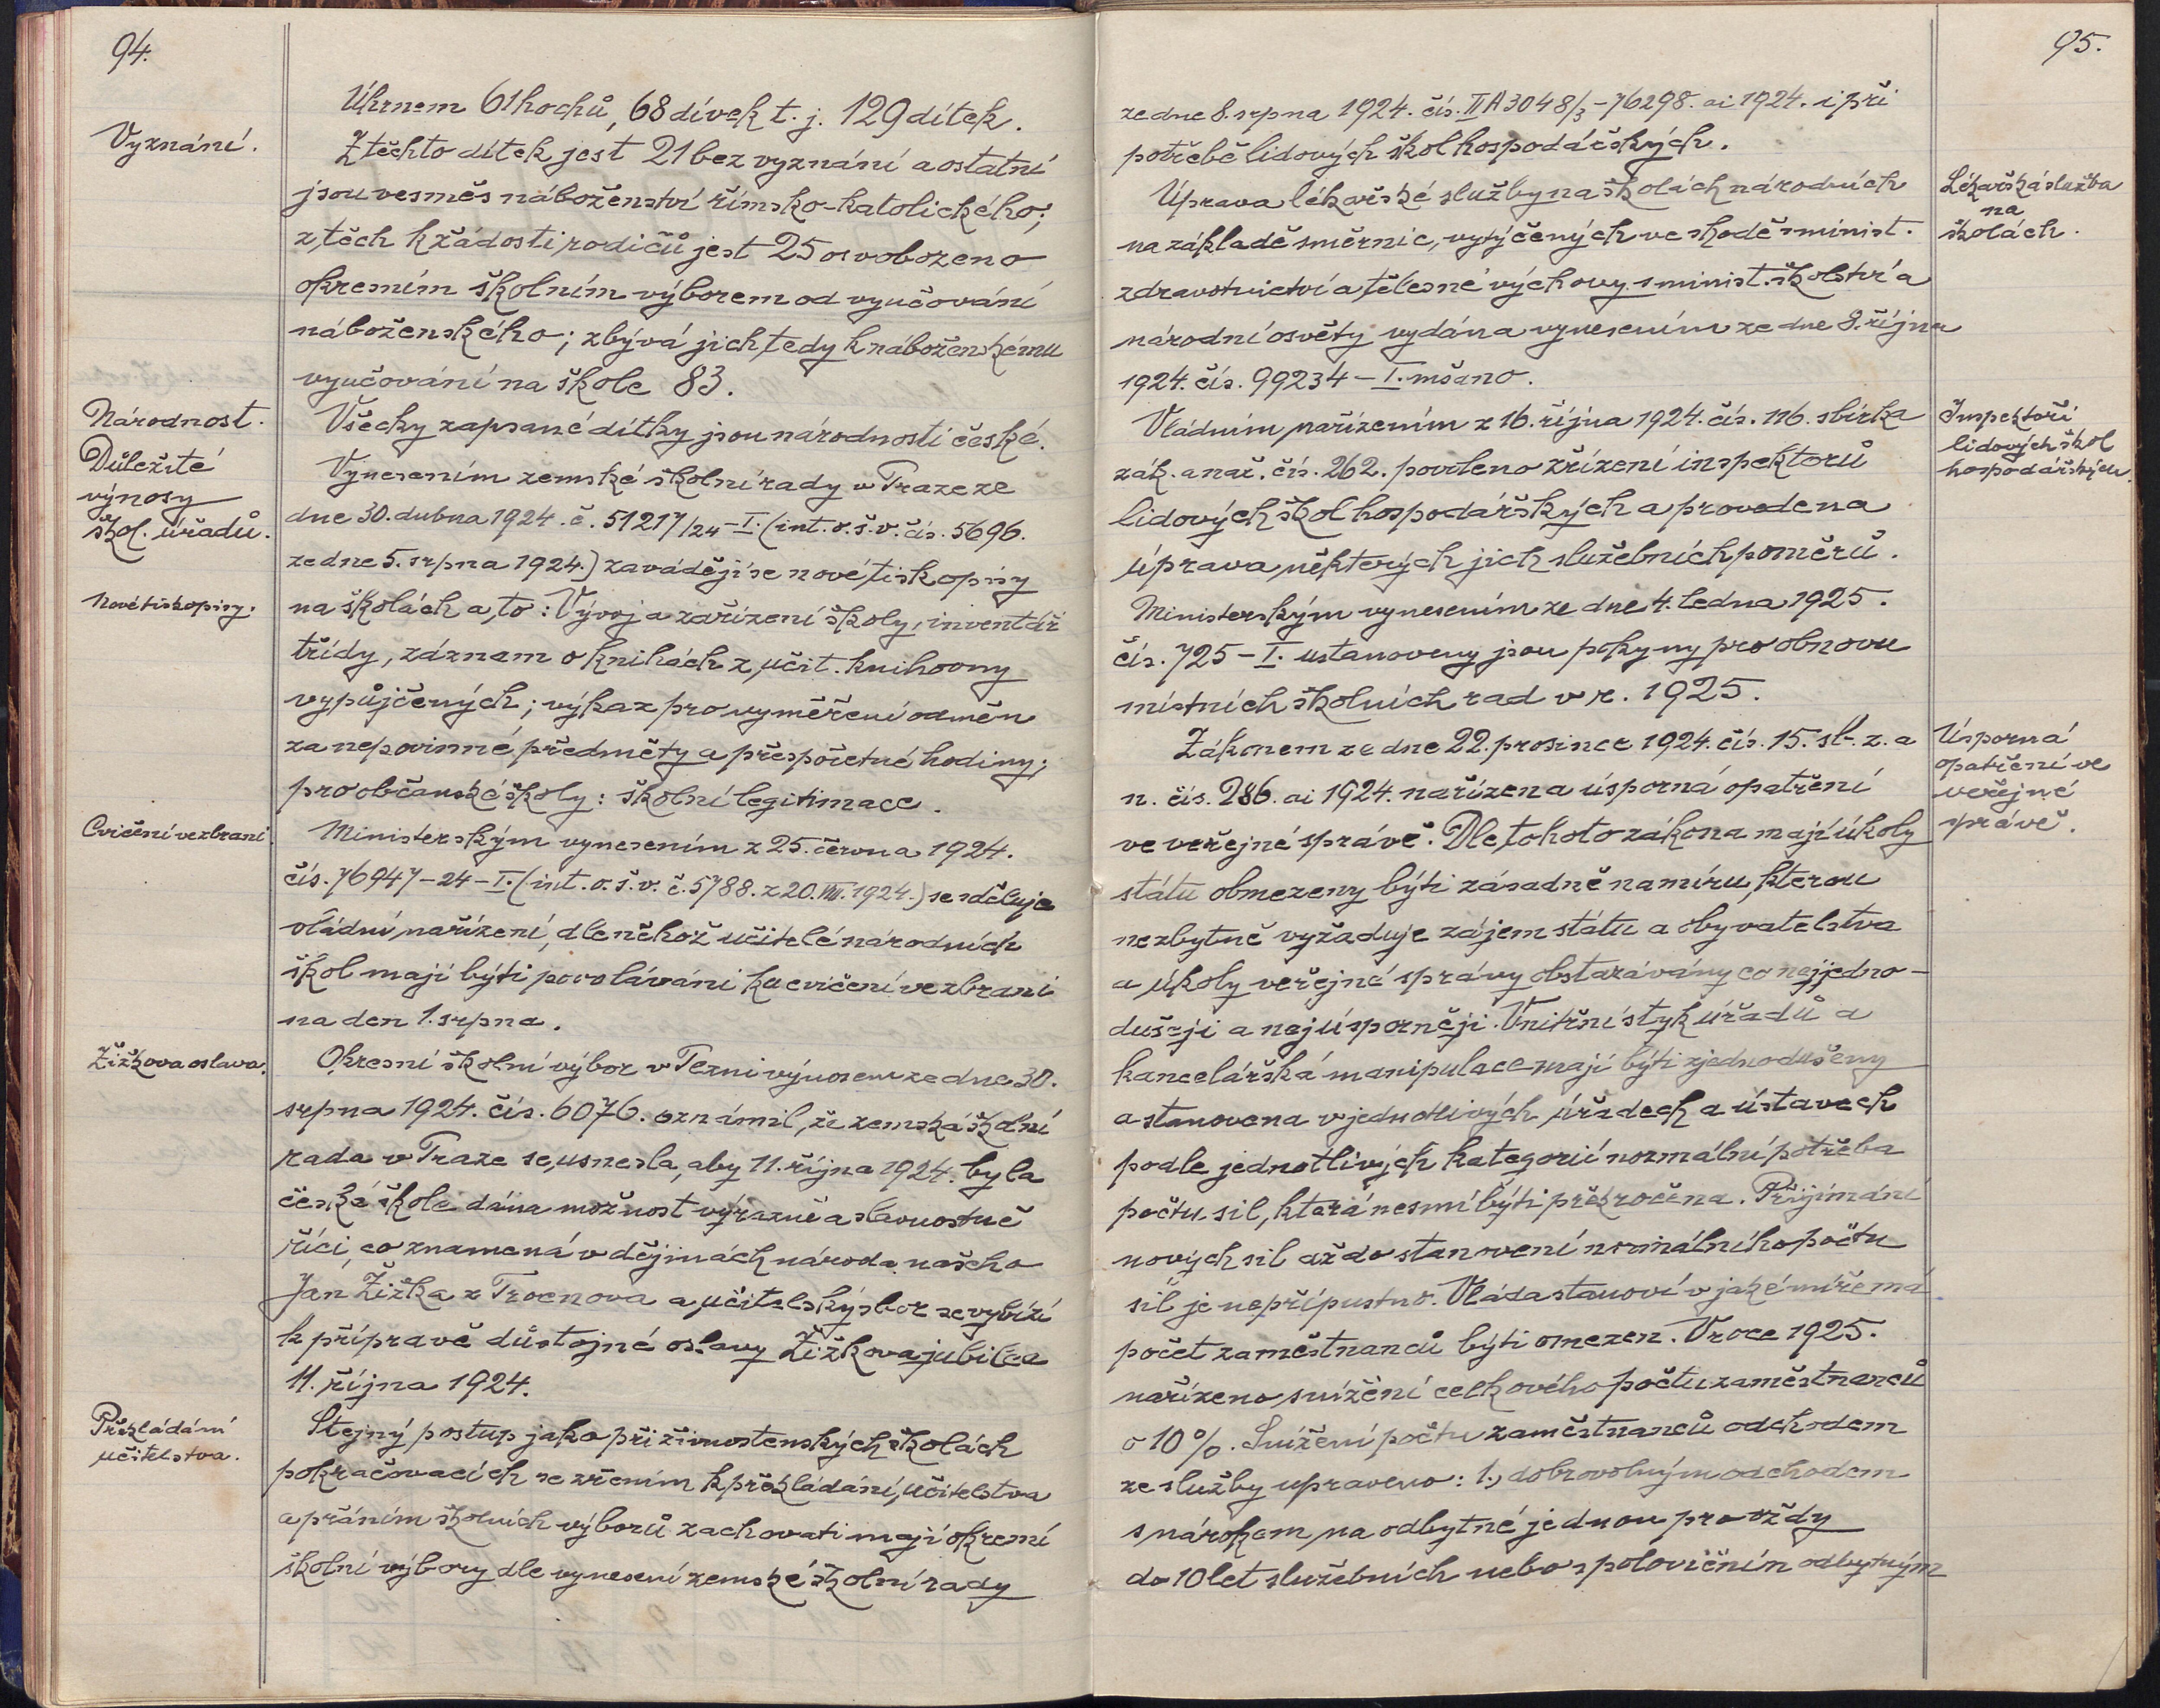 94.
Úhrnem 61 hochů, 68 dívek t. j. 129 dítek.
Vyznání.
Z těchto dítek jest 21 bez vyznání a ostatní
jsou vesměs náboženství římsko-katolického;
z těch k žádosti rodičů jest 25 osvobozeno
okresním školním výborem od vyučování
náboženského; zbývá jich tedy k náboženskému
vyučování na škole 83.
Národnost.
Všecky zapsané dítky jsou národnosti české.
Důležité
výnosy
škol. úřadů.
Vynesením zemské školní rady v Praze ze
dne 30. dubna 1924. č. 51217/24-I. (int. o. š. v. čís. 5696.
ze dne 5. srpna 1924.) zavádějí se nové tiskopisy
Nové tiskopisy.
na školách a to: Vývoj a zařízení školy, inventář
třídy, záznam o knihách z učit. knihovny
vypůjčených; výkaz pro vyměření odměn
za nepovinné předměty a přespočetné hodiny;
pro občanské školy: školní legitimace.
Cvičení ve zbrani.
Ministerským vynesením z 25. června 1924.
čís. 76947-24-I. (int. o. š. v. č. 5788. z 20. VIII. 1924.) se sděluje
vládní nařízení, dle něhož učitelé národních
škol mají býti povoláváni ku cvičení ve zbrani
na den 1. srpna.
Žižkova oslava.
Okresní školní výbor v Berouně výnosem ze dne 30.
srpna 1924. čís. 6076. oznámil, že zemská školní
rada v Praze se usnesla, aby 11. října 1924. byla
české škole dána možnost výrazně a slavnostně
říci, co znamená v dějinách národa našeho
Jan Žižka z Trocnova a učitelský sbor se vybízí
k přípravě důstojné oslavy Žižkova jubilea
11. října 1924.
Překládání
učitelstva.
Stejný postup jako při živnostenských školách
pokračovacích se zřením k překládání učitelstva
a přáním školních výborů zachovati mají okresní
školní výbory dle vynesení zemské školní rady
95.
ze dne 8. srpna 1924. čís. II A 3048/3-76298. ai 1924. i při
potřebě lidových škol hospodářských.
Lékařská služba
na
školách.
Úprava lékařské služby na školách národních
na základě směrnic, vytýčených ve shodě s minist.
zdravotnictví a tělesné výchovy s minist. školství a
národní osvěty vydána vynesením ze dne 8. října
1924. čís. 99234-I. mšano.
Inspektoři
lidových škol
hospodářských.
Vládním nařízením z 16. října 1924. čís. 116. sbírka
zák. a nař. čís. 262. povoleno zřízení inspektorů
lidových škol hospodářských a provedena
úprava některých jich služebních poměrů.
Ministerským vynesením ze dne 4. ledna 1925.
čís. 725-I. ustanoveny jsou pokyny pro obnovu
místních školních rad v r. 1925.
Úsporná
opatření ve
veřejné
správě.
Zákonem ze dne 22. prosince 1924. čís. 15. sb. z. a
n. čís. 286. ai 1924. nařízena úsporná opatření
ve veřejné správě. Dle tohoto zákona mají úkoly
státu obmezeny býti zásadně na míru, kterou
nezbytně vyžaduje zájem státu a obyvatelstva
a úkoly veřejné správy obstarávány co nejjedno-
dušeji a nejúsporněji. Vnitřní styk úřadů a
kancelářská manipulace mají býti zjednodušeny
a stanovena v jednotlivých úřadech a ústavech
podle jednotlivých kategorií normální potřeba
počtu sil, která nesmí býti překročena. Přijímání
nových sil až do stanovení normálního počtu
sil je nepřípustno. Vláda stanoví v jaké míře má
počet zaměstnanců býti omezen. V roce 1925.
nařízeno snížení celkového počtu zaměstnanců
o 10%. Snížení počtu zaměstnanců odchodem
ze služby upraveno: 1., dobrovolným odchodem
s nárokem na odbytné jednou pro vždy
do 10 let služebních nebo s polovičním odbytným